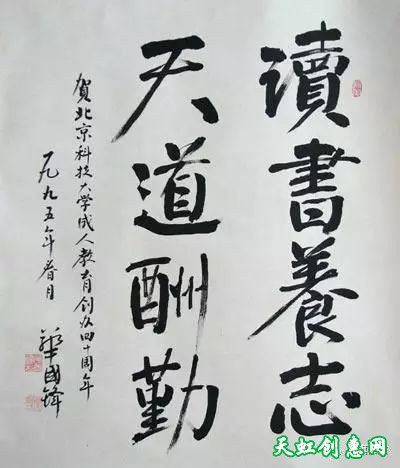 讀書養志
天道酬勤
賀北京科技大学成人教育创办四十周年
一九九五年春月
華國鋒
天虹创惠网